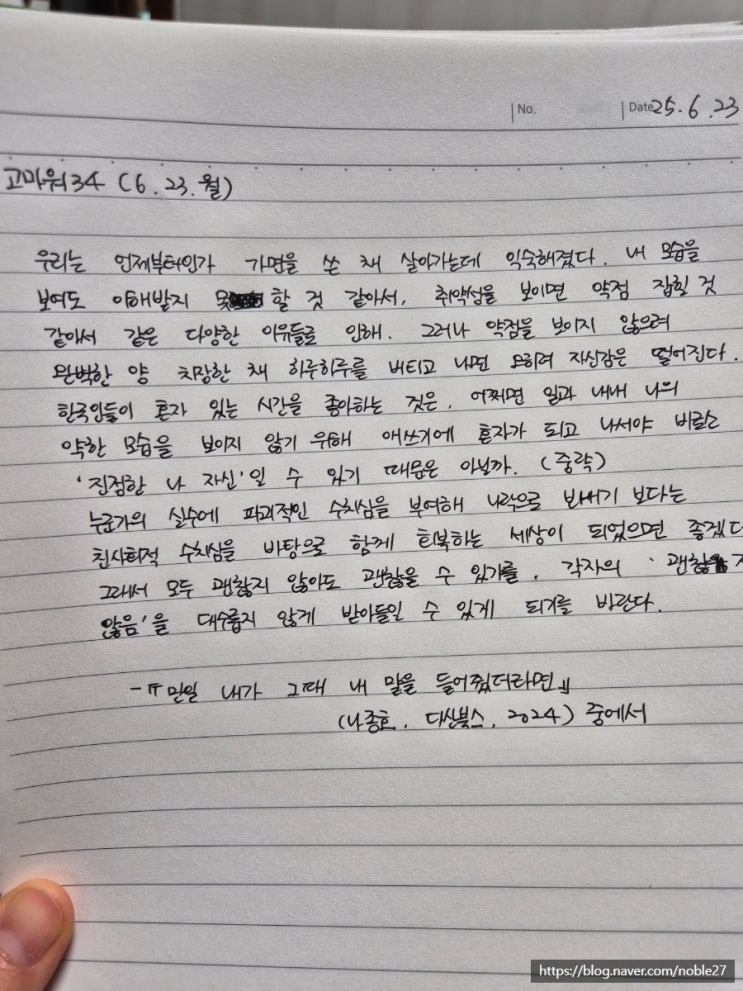 No. Date 25. 6. 23
고마워34 (6. 23. 월)
우리는 언제부터인가 가면을 쓴 채 살아가는데 익숙해졌다. 내 모습을
보여도 이해받지 못할 것 같아서, 취약성을 보이면 약점 잡힐 것
같아서 같은 다양한 이유들로 인해. 그러나 약점을 보이지 않으려
완벽한 양 치장한 채 하루하루를 버티고 나면 오히려 자신감은 떨어진다.
한국인들이 혼자 있는 시간을 좋아하는 것은, 어쩌면 일과 내내 나의
약한 모습을 보이지 않기 위해 애쓰기에 혼자가 되고 나서야 비로소
'진정한 나 자신'일 수 있기 때문은 아닐까. (중략)
누군가의 실수에 파괴적인 수치심을 부여해 나락으로 보내기 보다는
친사회적 수치심을 바탕으로 함께 회복하는 세상이 되었으면 좋겠다
그래서 모두 괜찮지 않아도 괜찮을 수 있기를, 각자의 '괜찮지
않음'을 대수롭지 않게 받아들일 수 있게 되기를 바란다.
-『만일 내가 그때 내 말을 들어줬더라면』
(나종호, 다산북스, 2024) 중에서
https://blog.naver.com/noble27